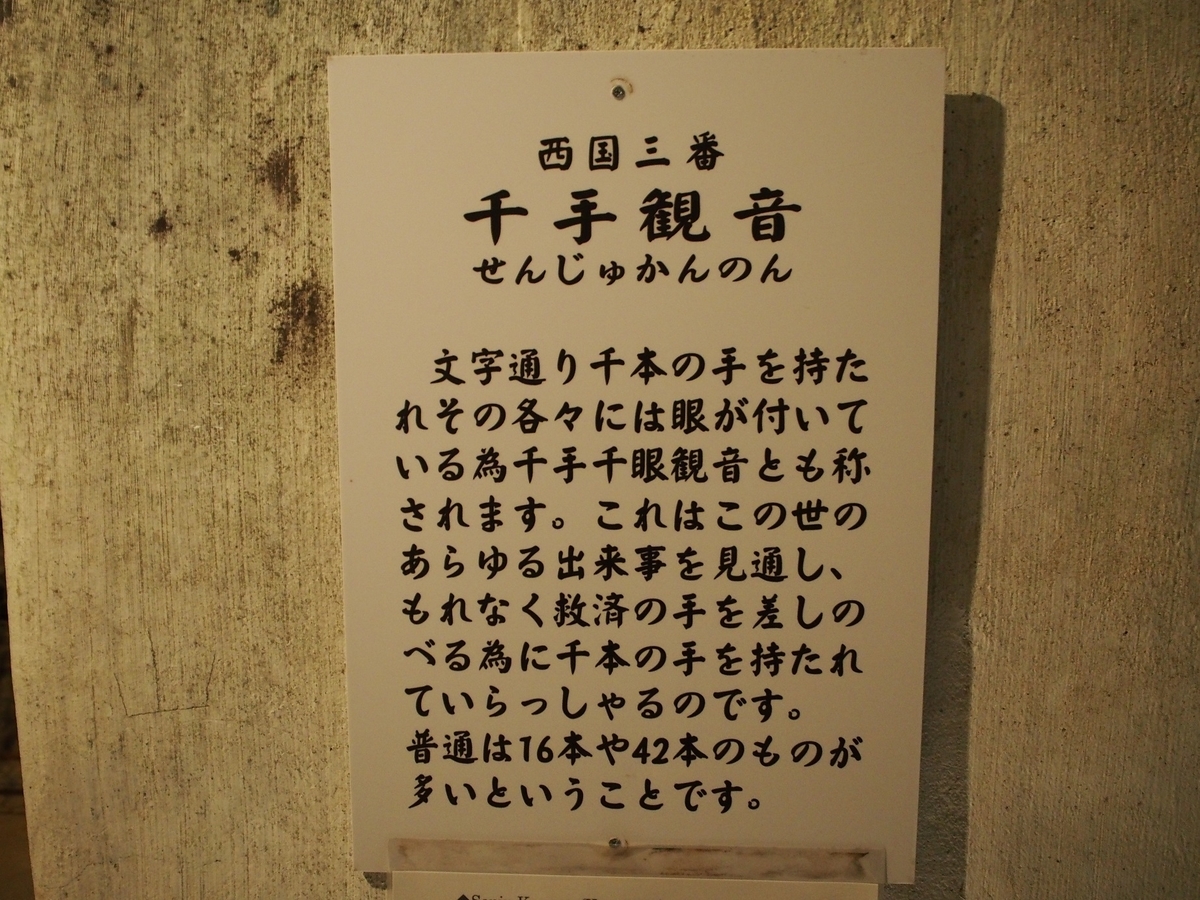 西国三番
千手観音
せんじゅかんのん
文字通り千本の手を持た
れその各々には眼が付いて
いる為千手千眼観音とも称
されます。これはこの世の
あらゆる出来事を見通し、
もれなく救済の手を差しの
べる為に千本の手を持たれ
ていらっしゃるのです。
普通は16本や42本のものが
多いということです。